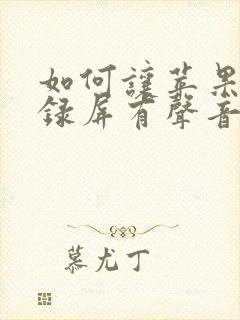 如何讓苹果
録屏有聲音
慕尤丁